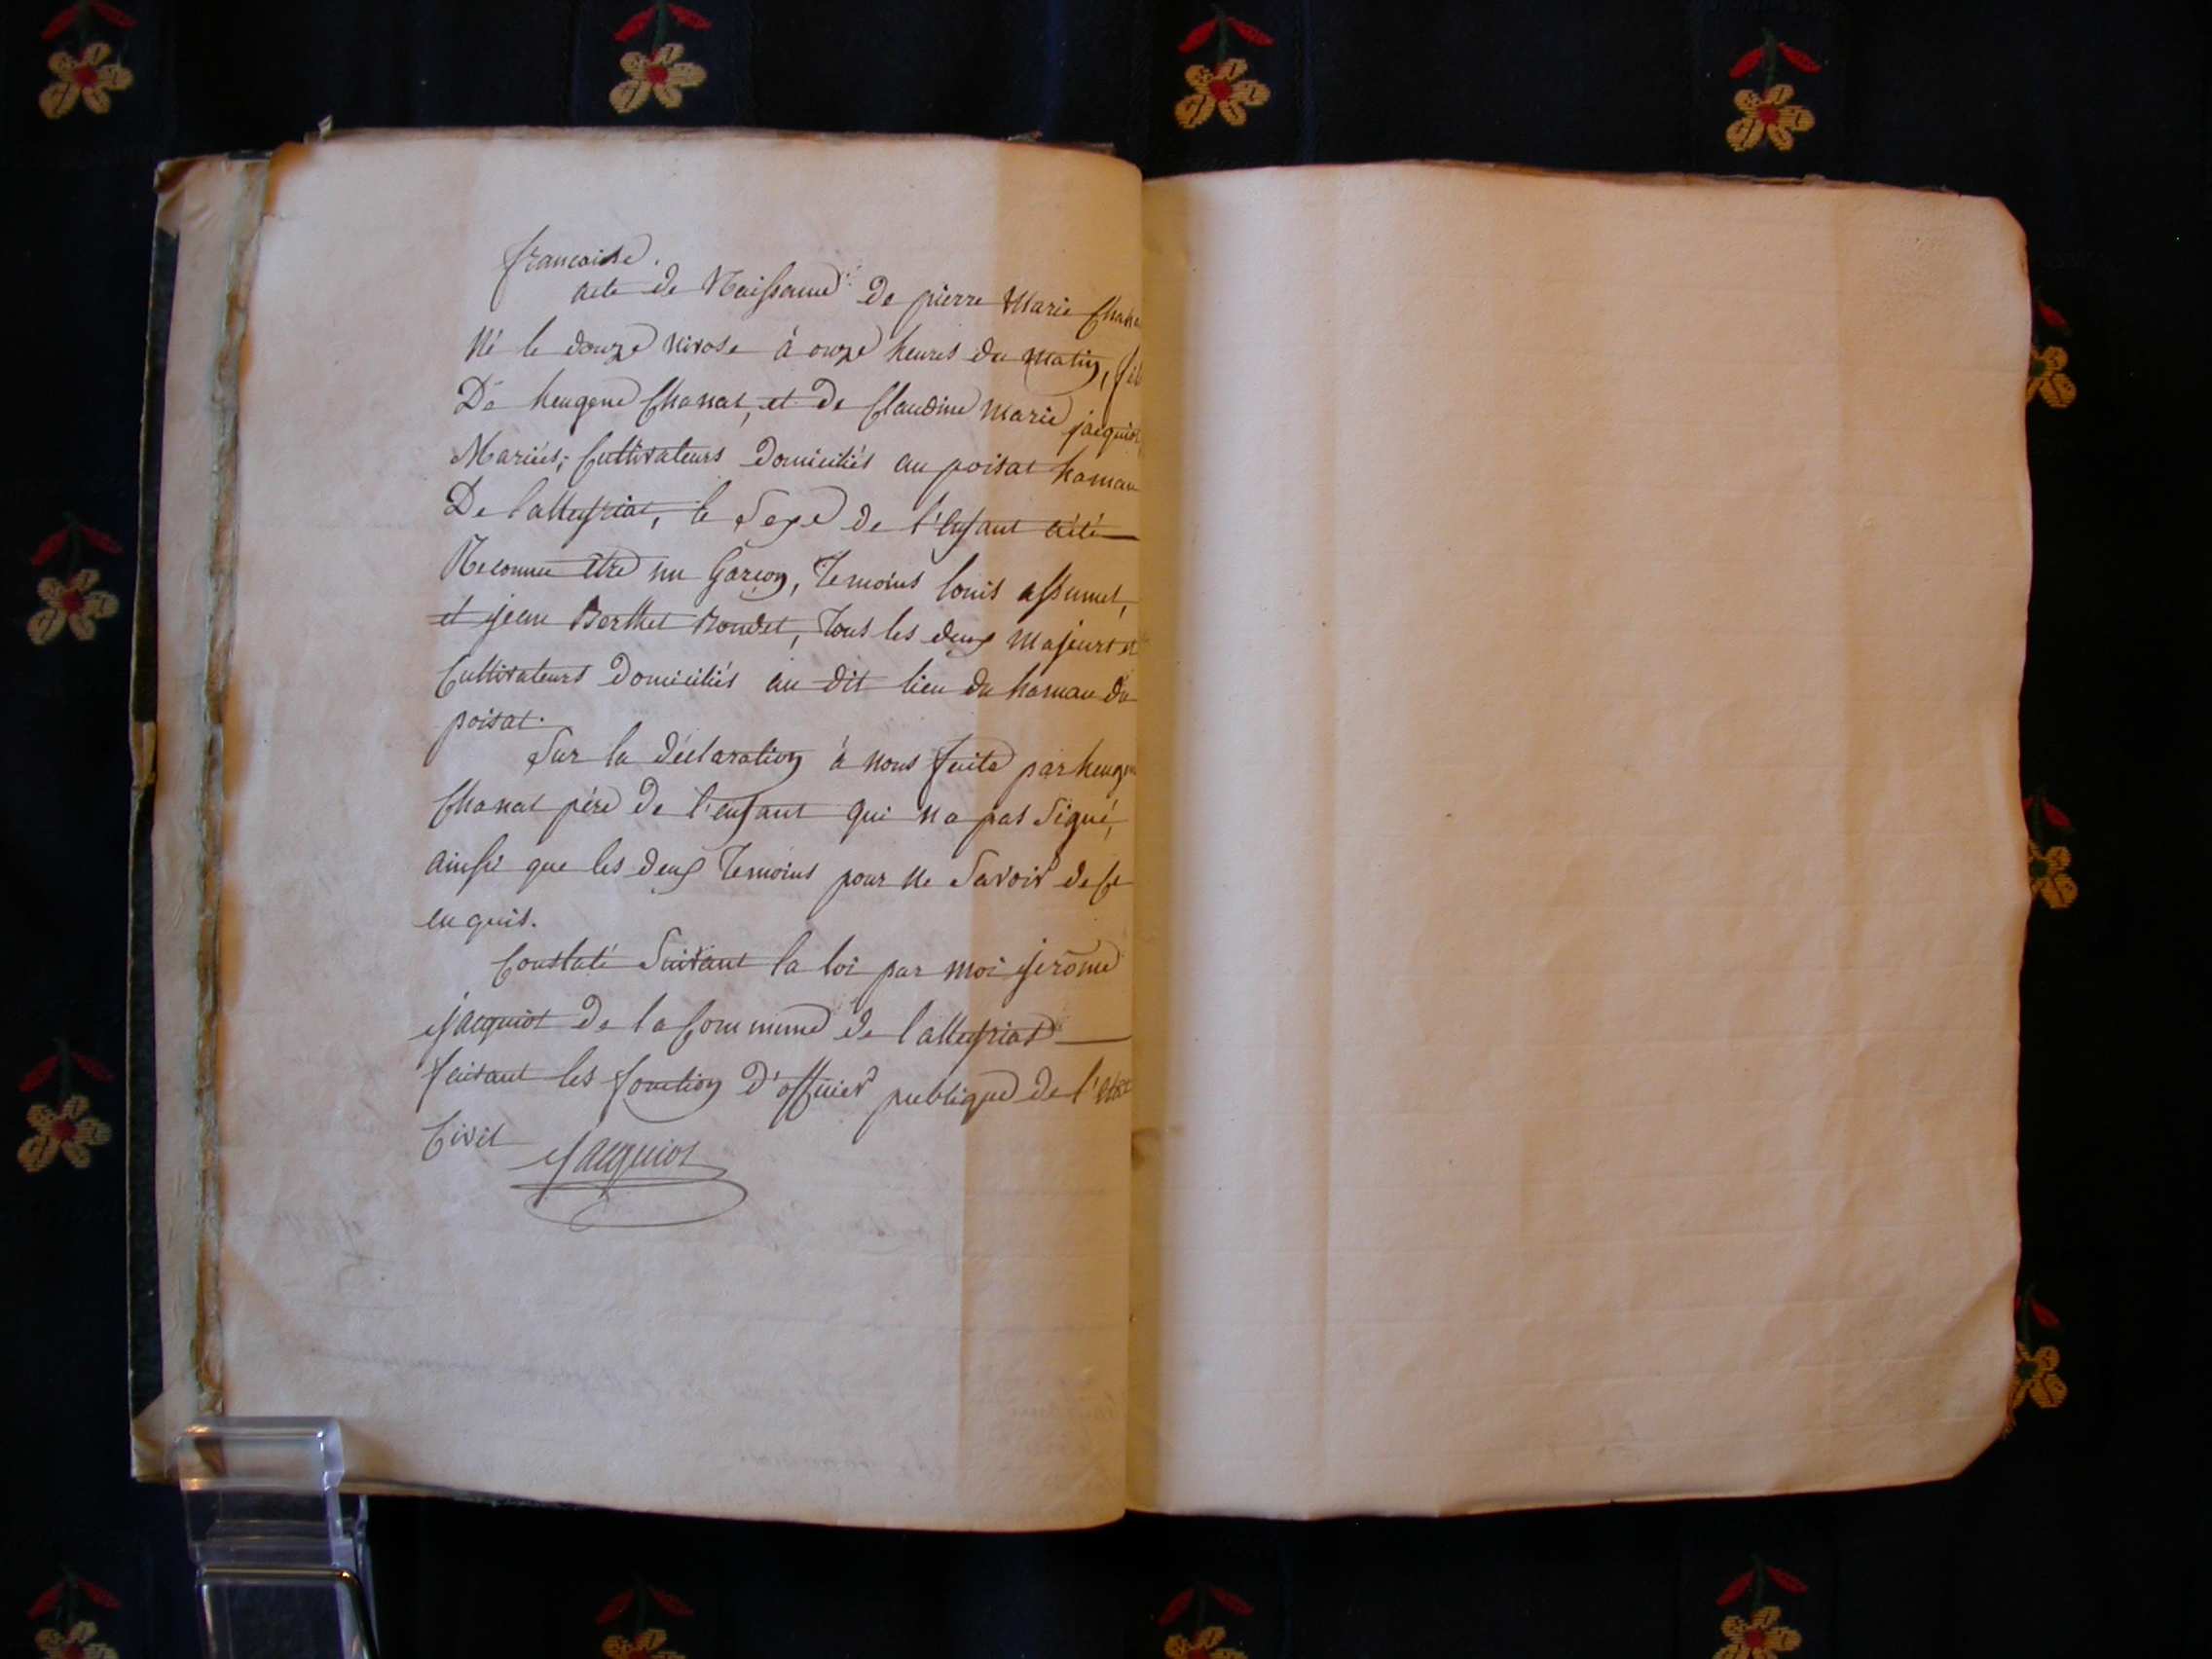 francaise.
acte de Naissance De pierre Marie Chana
Né le douze nivose à onze heures du matin, fils
De heugene Chanat, et de Claudine Marie jacquiot
Mariés; Cultivateurs Domiciliés au poisat hamau
De lalleyriat, le Sexe de l'enfant a été
Reconnu être un Garçon, Temoins louis assumet,
et jean Berthet Bondet, Tous les deux majeurs et
Cultivateurs Domiciliés au dit lieu du hamau du
poisat.
Sur la déclaration à nous faite par heugene
Chanat père De l'enfant qui na pas Signé,
ainsi que les deux Temoins pour ne Savoir de ce
enquis.
Constaté Suivant la loi par moi jerôme
jacquiot De la Commune de lalleyriat
faisant les fonction d'officier publique De l'état
Civil Jacquiot